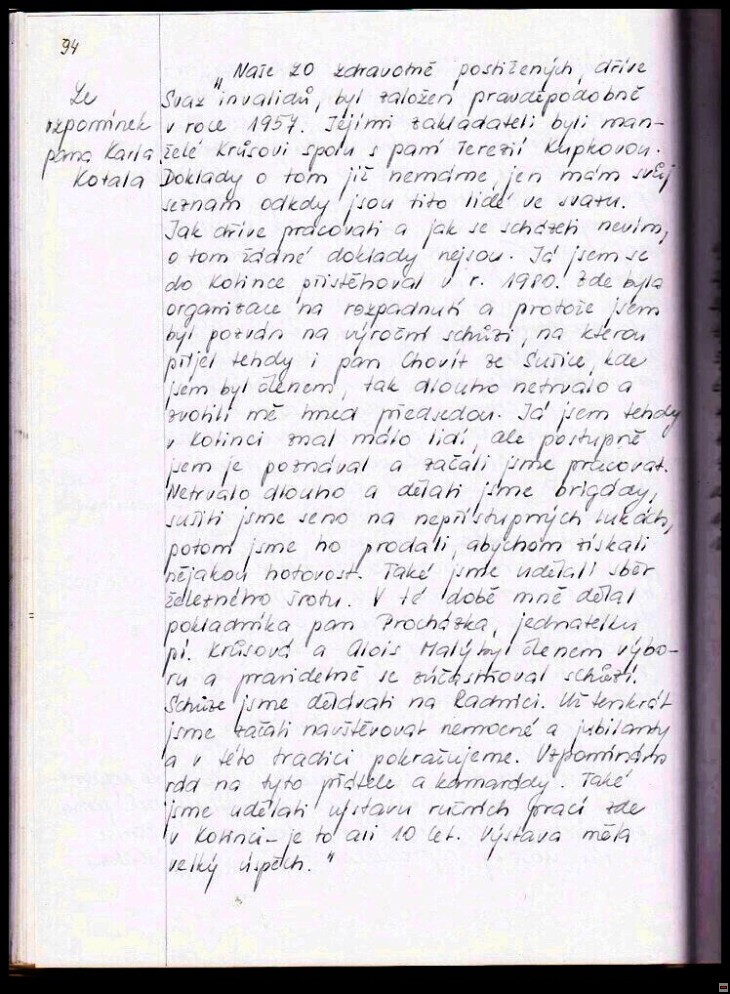 94
Ze
vzpomínek
pana Karla
Kotala
„Naše ZO zdravotně postižených, dříve
Svaz invalidů, byl založen pravděpodobně
v roce 1957. Jejími zakladateli byli man-
želé Krůsovi spolu s paní Terezií Kupkovou.
Doklady o tom již nemáme, jen mám svůj
seznam odkdy jsou tito lidé ve svazu.
Jak dříve pracovali a jak se scházeli nevím,
o tom žádné doklady nejsou. Já jsem se
do Kolince přistěhoval v r. 1980. Zde byla
organizace na rozpadnutí a protože jsem
byl pozván na výroční schůzi, na kterou
přijel tehdy i pan Chovít ze Sušice, kde
jsem byl členem, tak dlouho netrvalo a
zvolili mě hned předsedou. Já jsem tehdy
v Kolinci znal málo lidí, ale postupně
jsem je poznával a začali jsme pracovat.
Netrvalo dlouho a dělali jsme brigády,
sušili jsme seno na nepřístupných lukách,
potom jsme ho prodali, abychom získali
nějakou hotovost. Také jsme udělali sběr
železného šrotu. V té době mně dělal
pokladníka pan Procházka, jednatelku
pí. Krůsová a Alois Malý byl členem výbo-
ru a pravidelně se zúčastňoval schůzí.
Schůze jsme dělávali na Radnici. Už tenkrát
jsme začali navštěvovat nemocné a jubilanty
a v této tradici pokračujeme. Vzpomínám
rád na tyto přátele a kamarády. Také
jsme udělali výstavu ručních prací zde
v Kolinci - je to asi 10 let. Výstava měla
velký úspěch."